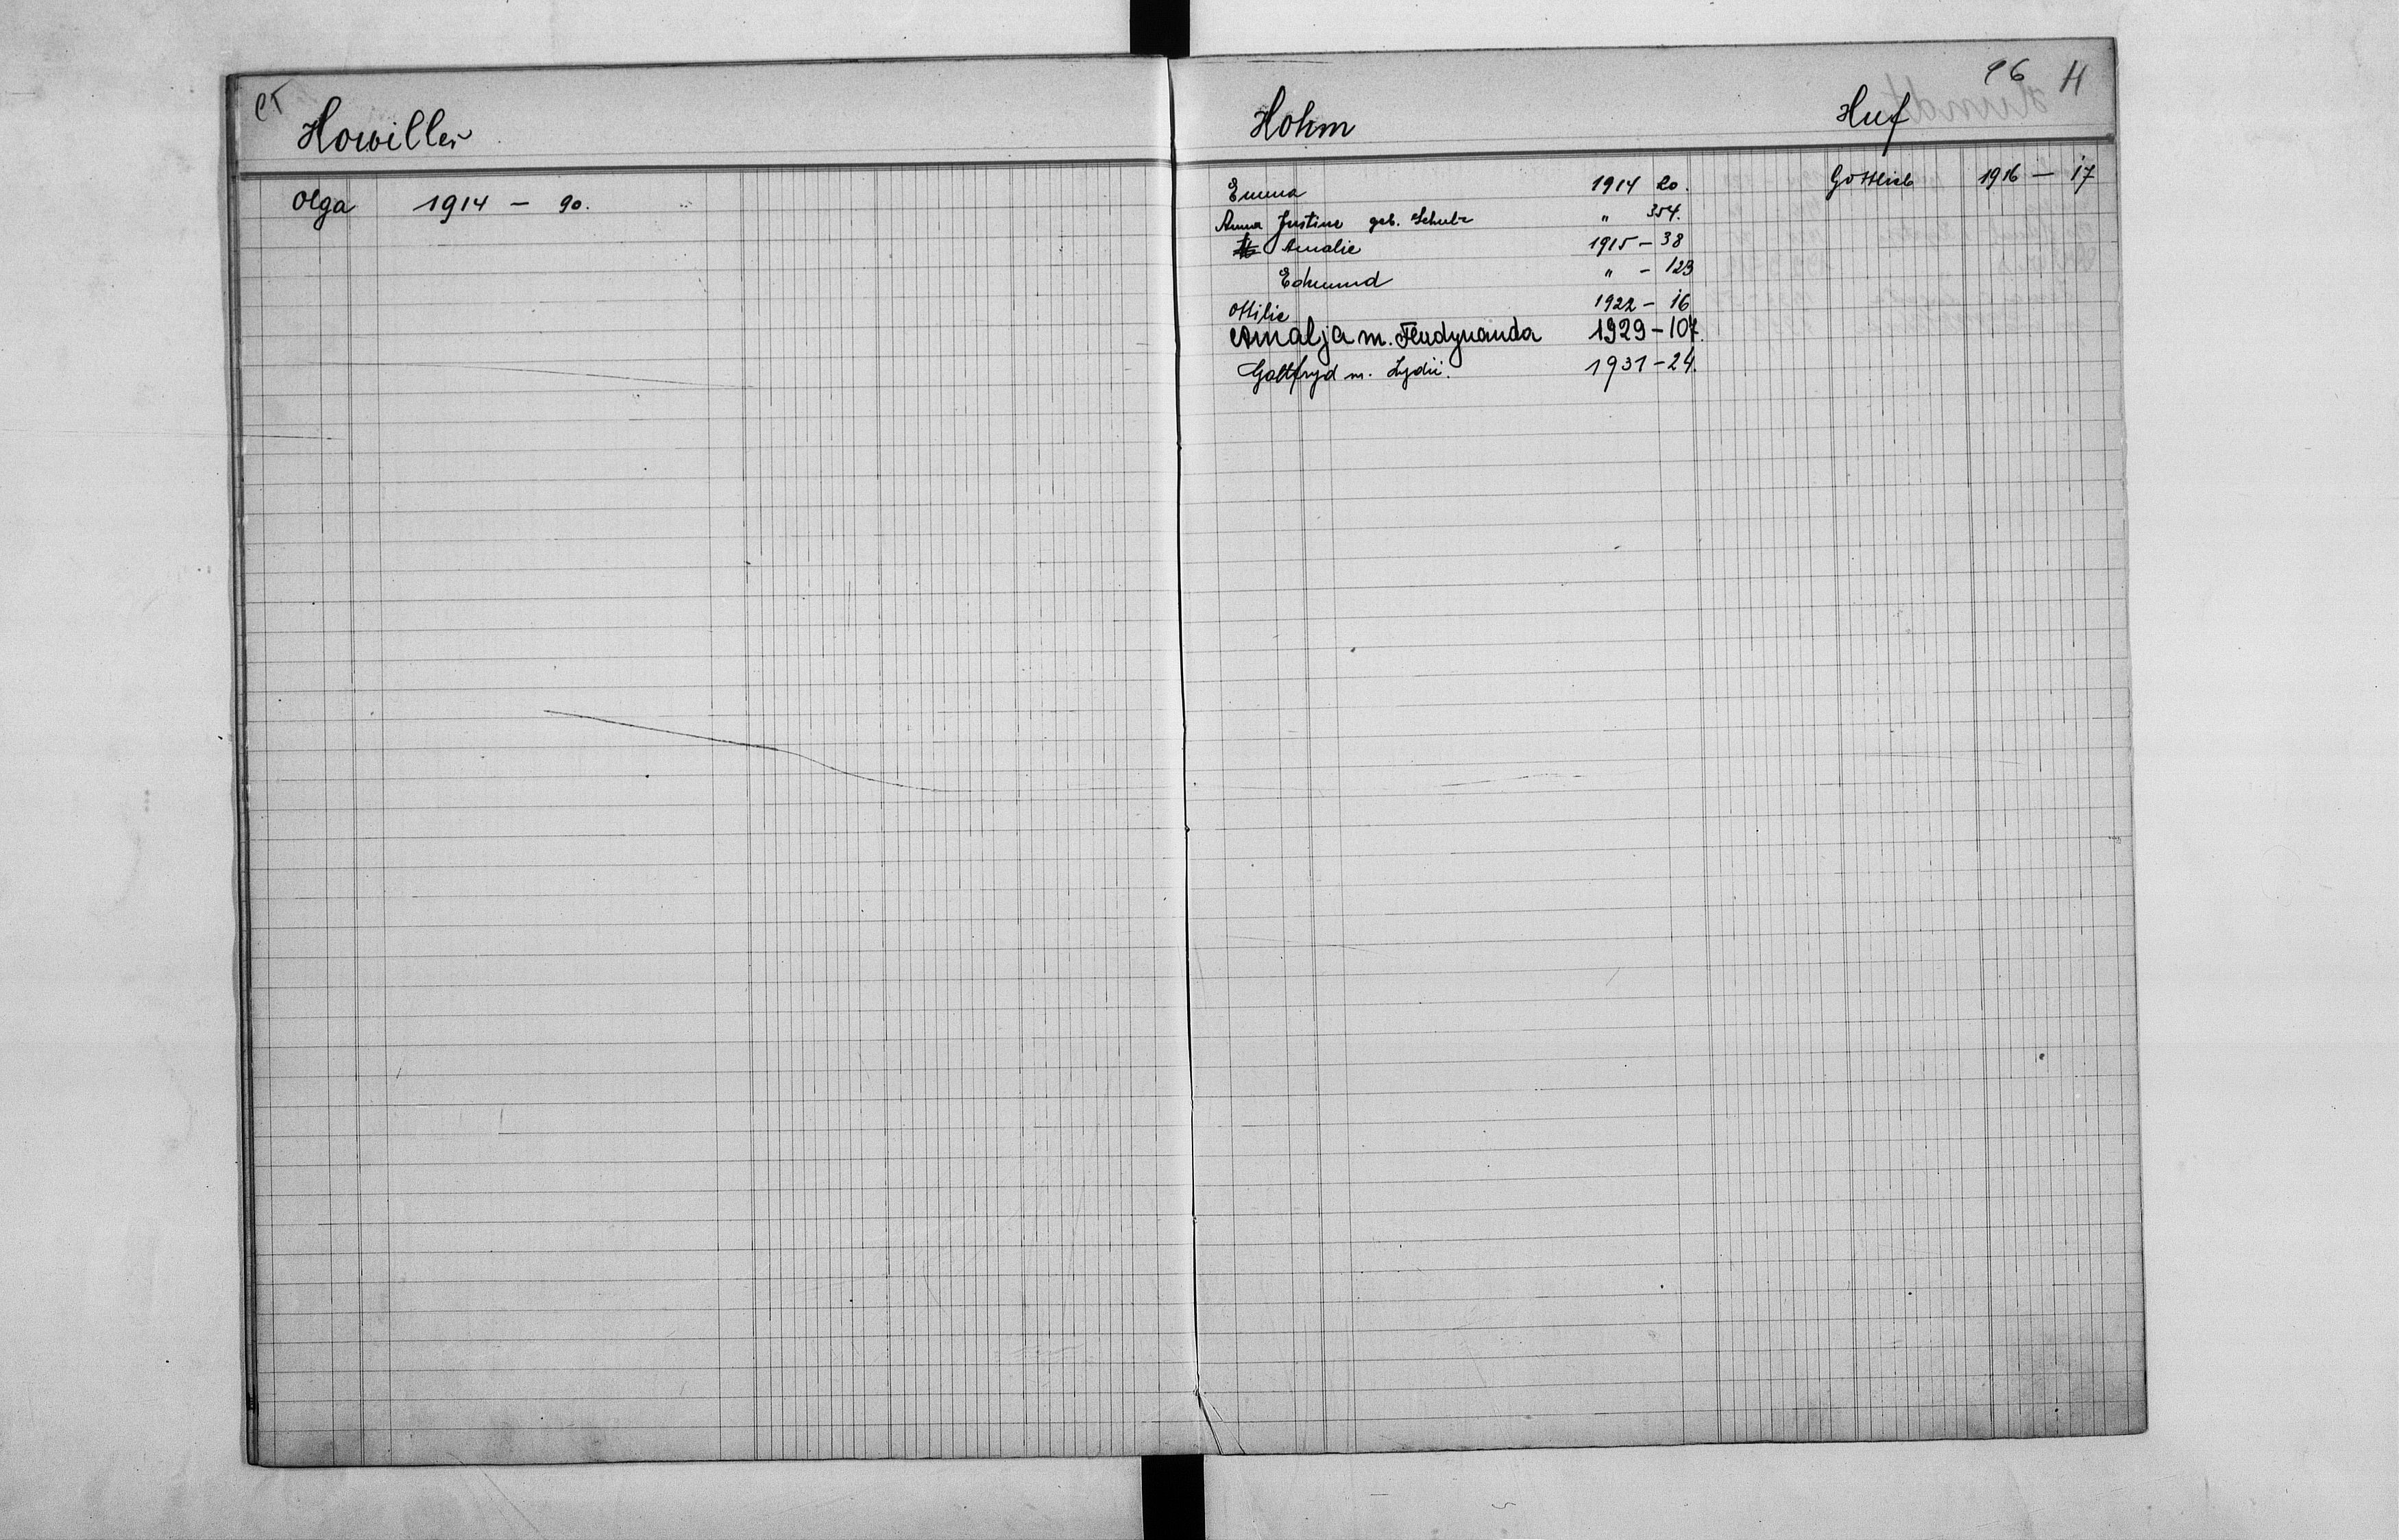 Howiller
Olga 1914 — 90.
96 H
Hohm
Emma 1914 20.
Anna Justine geb. Schulz " 354.
Amalie 1915 – 38
Edmund " – 123
Ottilie 1922 – 16
Amalja m. Ferdynanda 1929 – 107.
Gottfryd m. Lydii. 1931 – 24.
Huf
Gottlieb 1916 — 17